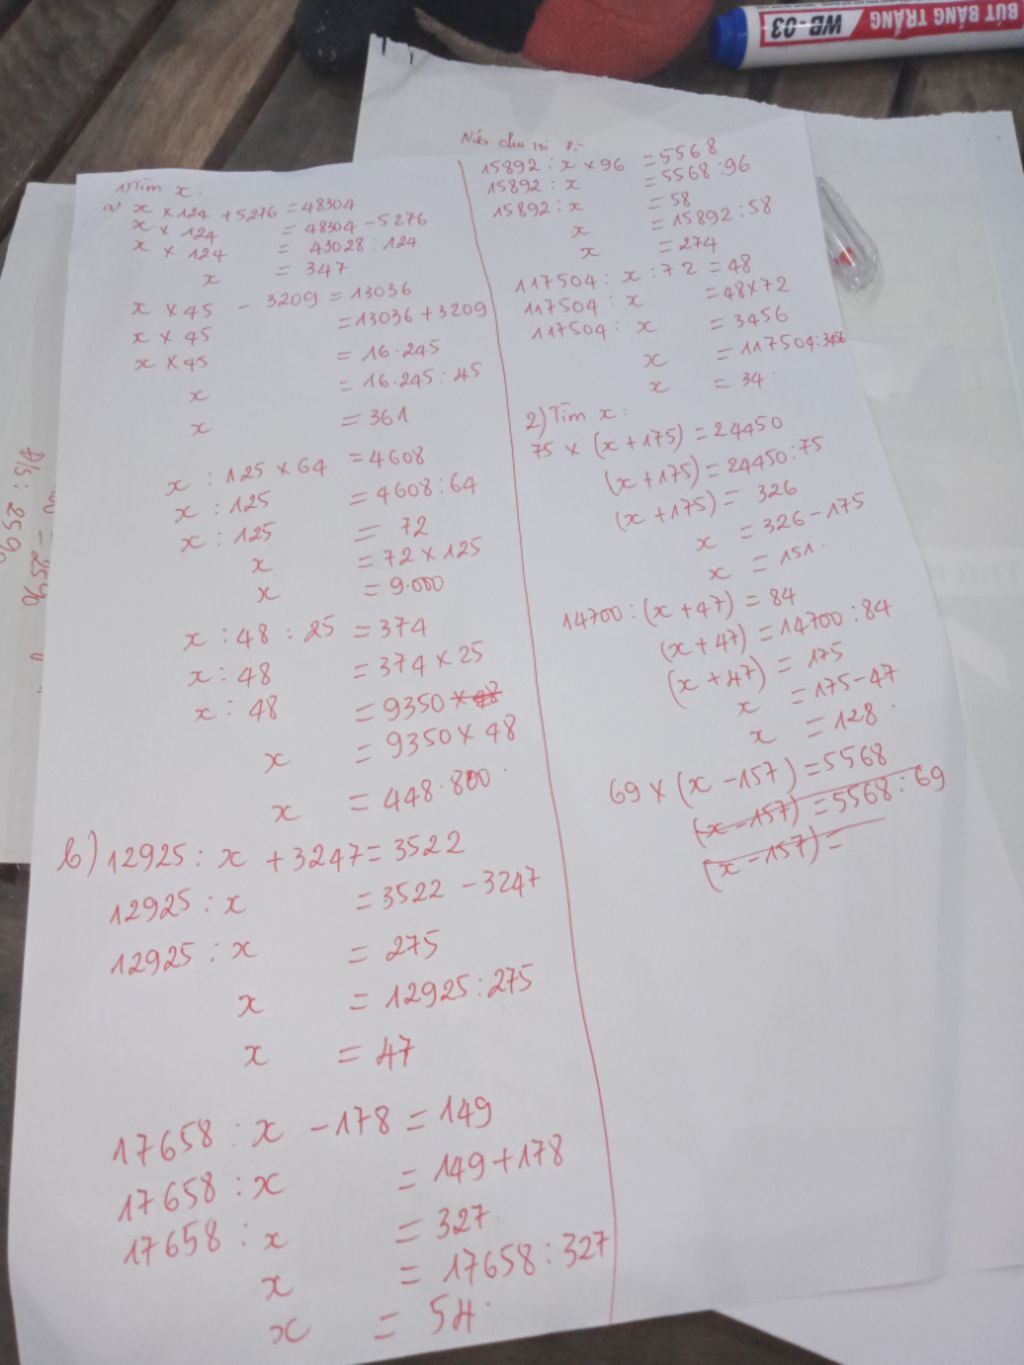 BÚT BẢNG TRẮNG
WB-03
1) Tìm x:
a) x × 124 + 5276 = 48304
x × 124 = 48304 - 5276
x × 124 = 43028 : 124
x = 347
x × 45 - 3209 = 13036
x × 45 = 13036 + 3209
x × 45 = 16.245
x = 16.245 : 45
x = 361
x : 125 × 64 = 4608
x : 125 = 4608 : 64
x : 125 = 72
x = 72 × 125
x = 9.000
x : 48 : 25 = 374
x : 48 = 374 × 25
x : 48 = 9350 × 48
x = 9350 × 48
x = 448.800.
b) 12925 : x + 3247 = 3522
12925 : x = 3522 - 3247
12925 : x = 275
x = 12925 : 275
x = 47
17658 : x - 178 = 149
17658 : x = 149 + 178
17658 : x = 327
x = 17658 : 327
x = 54.
Nửa chu vi
15892 : x × 96 = 5568
15892 : x = 5568 : 96
15892 : x = 58
x = 15892 : 58
x = 274
117504 : x : 72 = 48
117504 : x = 48 × 72
117504 : x = 3456
x = 117504 : 3456
x = 34.
2) Tìm x:
75 × (x + 175) = 24450
(x + 175) = 24450 : 75
(x + 175) = 326
x = 326 - 175
x = 151.
14700 : (x + 47) = 84
(x + 47) = 14700 : 84
(x + 47) = 175
x = 175 - 47
x = 128.
69 × (x - 157) = 5568
(x - 157) = 5568 : 69
(x - 157) =